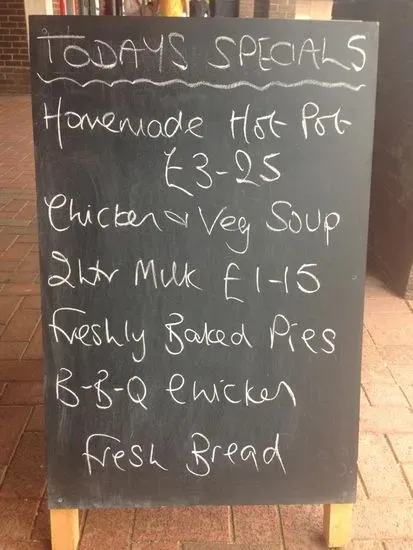 TODAYS SPECIALS
Homemade Hot Pot
£3-25
Chicken & Veg Soup
2ltr Milk £1-15
Freshly Baked Pies
B-B-Q Chicken
Fresh Bread